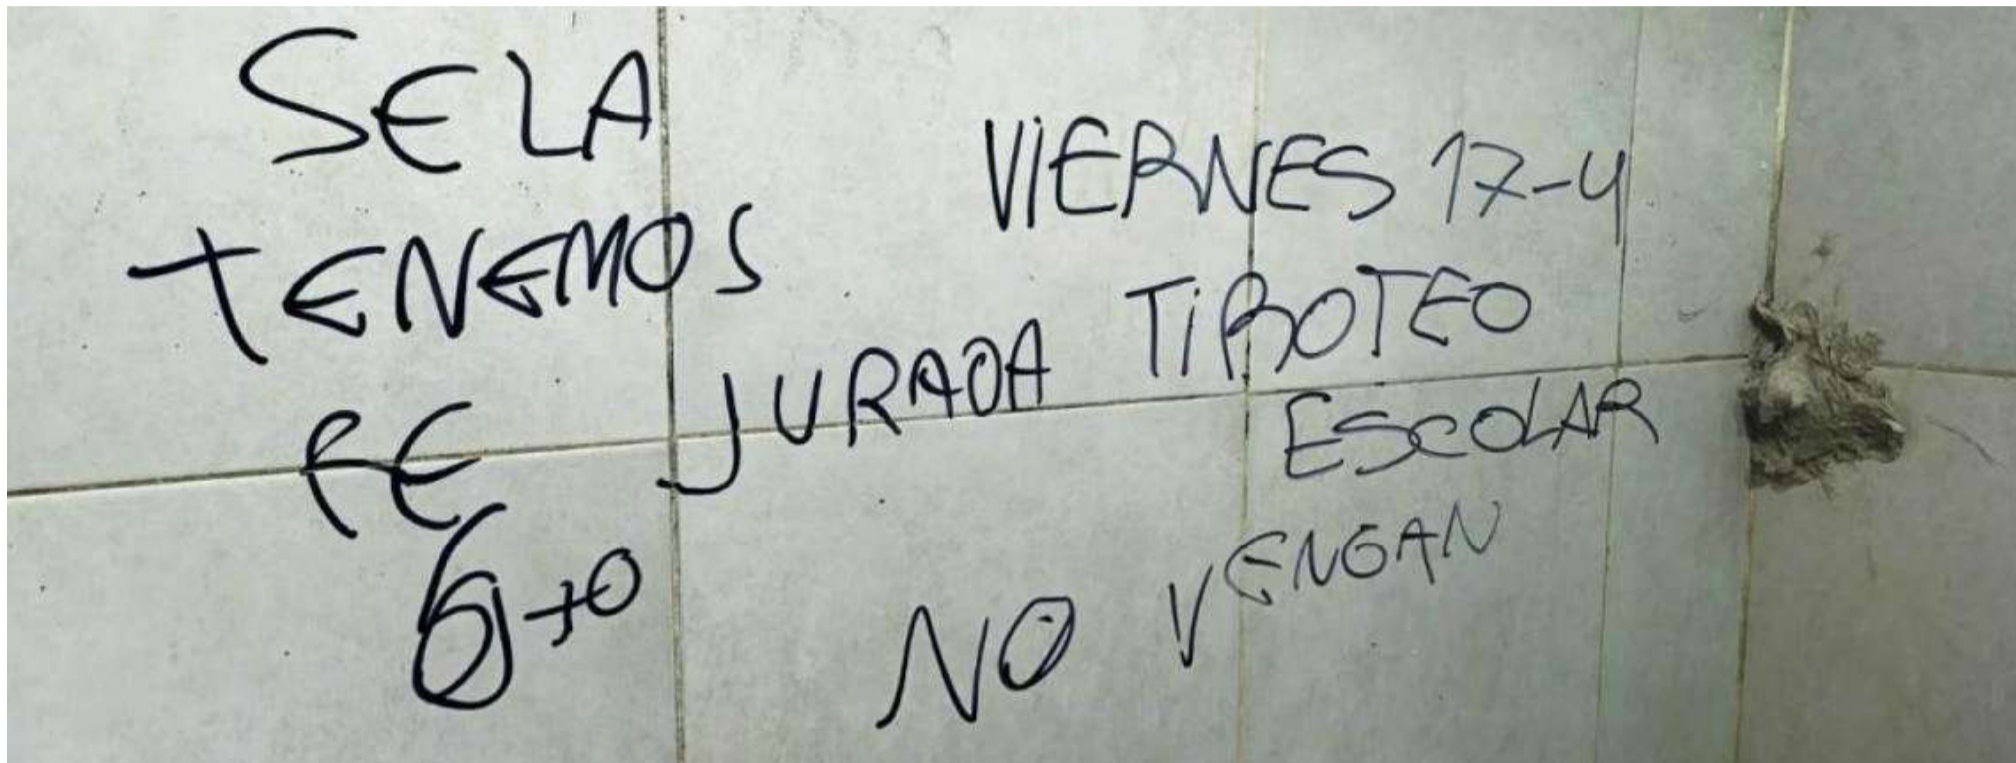 SE LA
TENEMOS
JURADA
6to
VIERNES 17-4
TIROTEO
ESCOLAR
NO VENGAN